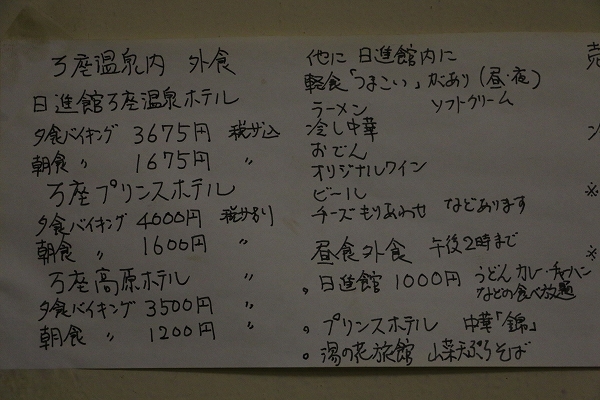 万座温泉内 外食
日進館万座温泉ホテル
夕食バイキング 3675円 税サ込
朝食 〃 1675円 〃
万座プリンスホテル
夕食バイキング 4000円 税サ別
朝食 〃 1600円 〃
万座高原ホテル 〃
夕食バイキング 3500円 〃
朝食 〃 1200円 〃
他に 日進館内に
軽食「つまこい」があり(昼・夜)
ラーメン ソフトクリーム
冷し中華
おでん
オリジナルワイン
ビール
チーズもりあわせ などあります
昼食外食 午後2時まで
。日進館 1000円 うどん カレー・チャーハン
などの食べ放題
。プリンスホテル 中華「錦」
。湯の花旅館 山菜天ぷらそば
売
※
※